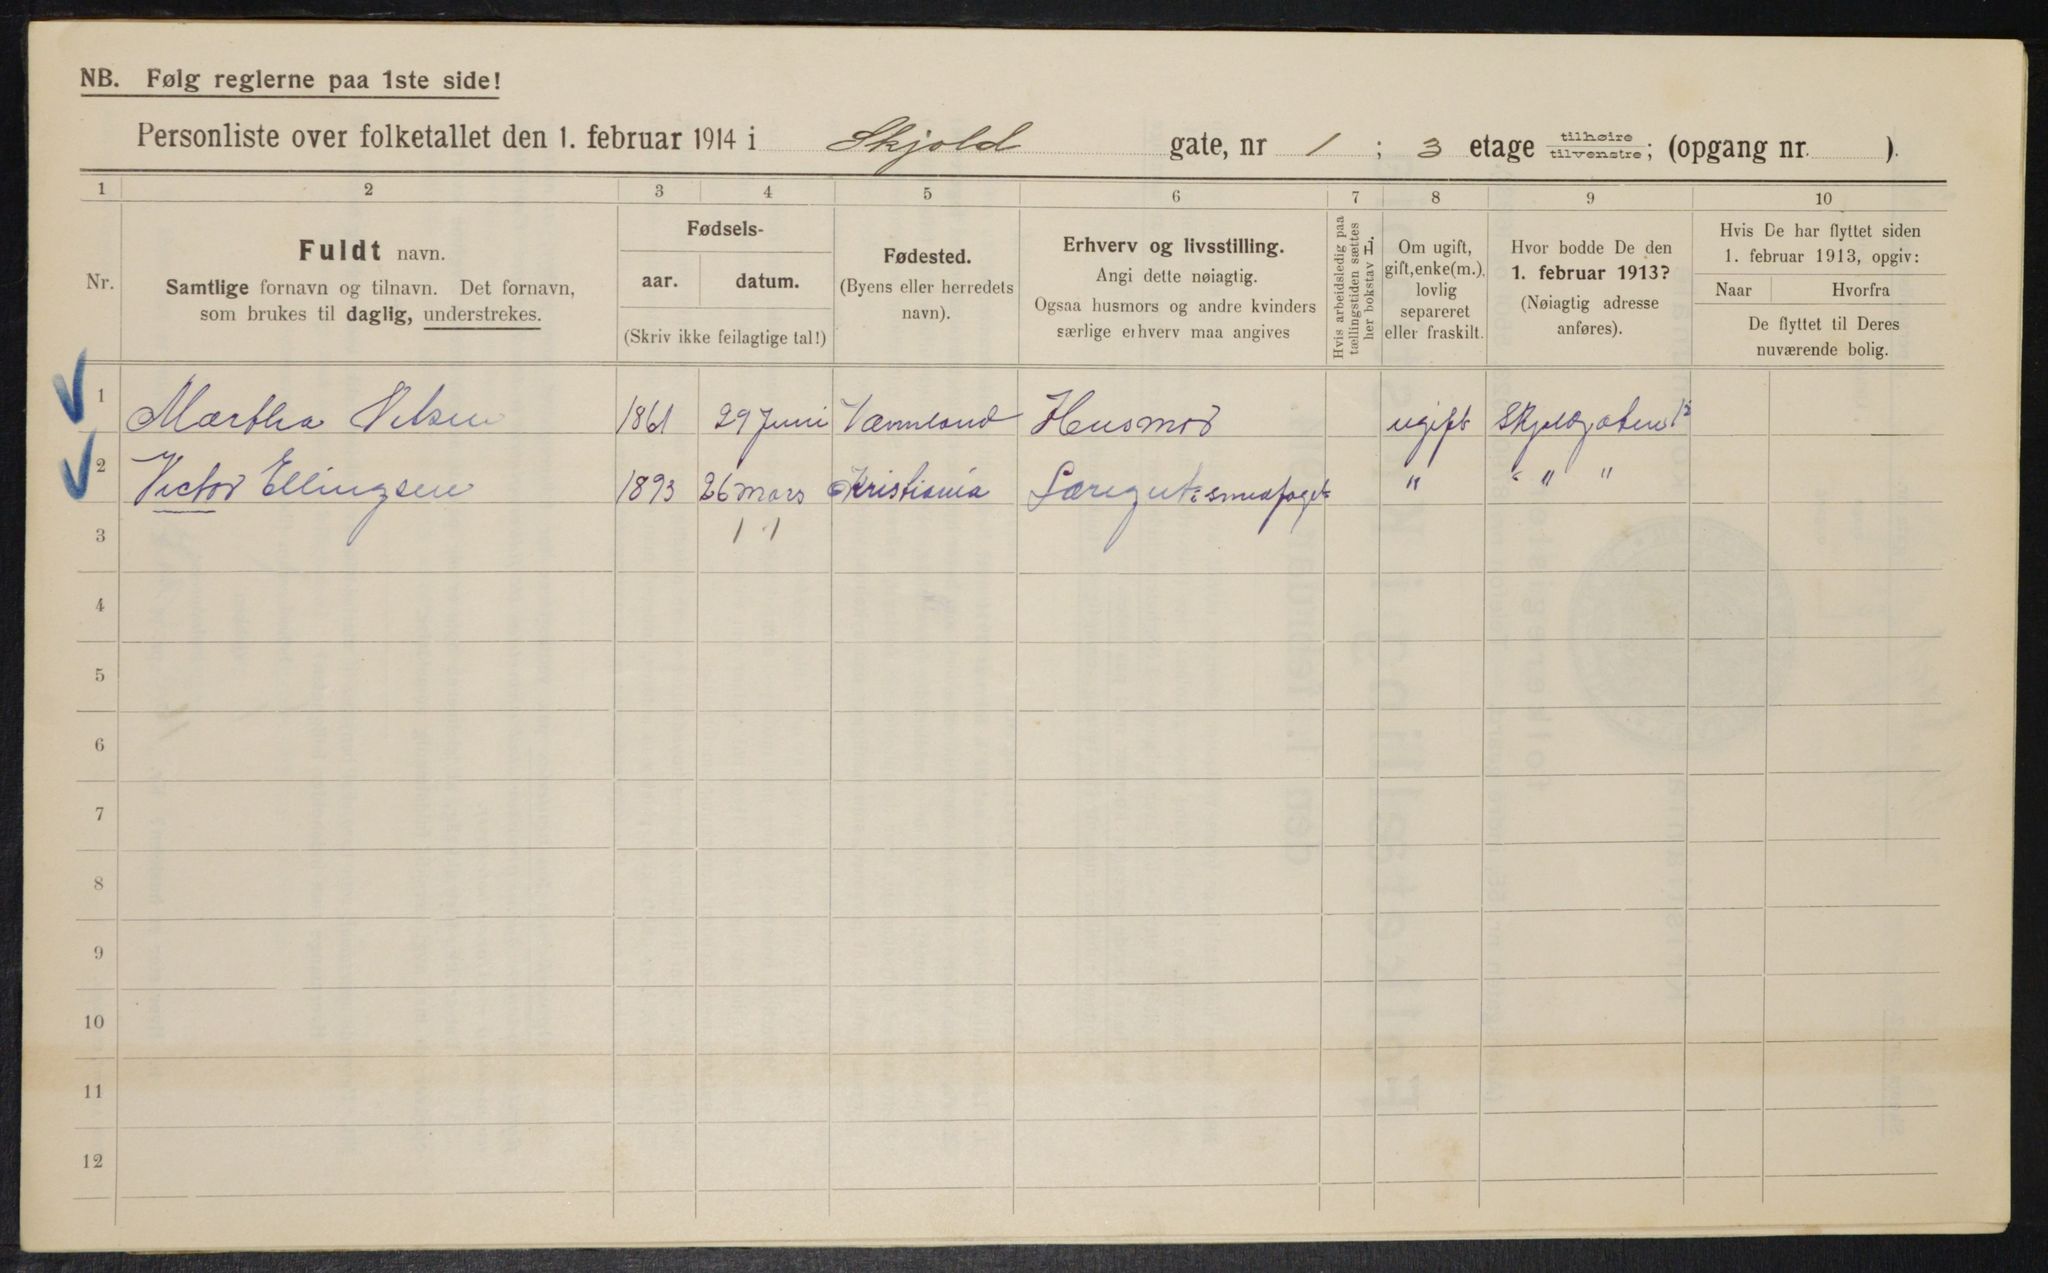 NB. Følg reglerne paa 1ste side!
Personliste over folketallet den 1. februar 1914 i Skjold gate, nr 1 ; 3 etage tilhøire tilvenstre; (opgang nr. ).
1 2 3 4 5 6 7 8 9 10
Nr.
Fuldt navn.
Samtlige fornavn og tilnavn. Det fornavn,
som brukes til daglig, understrekes.
Fødsels-
aar. datum.
(Skriv ikke feilagtige tal!)
Fødested.
(Byens eller herredets
navn).
Erhverv og livsstilling.
Angi dette nøiagtig.
Ogsaa husmors og andre kvinders
særlige erhverv maa angives
Hvis arbeidsledig paa
tællingstiden sættes
her bokstav L.
Om ugift,
gift, enke(m.),
lovlig
separeret
eller fraskilt.
Hvor bodde De den
1. februar 1913?
(Nøiagtig adresse
anføres).
Hvis De har flyttet siden
1. februar 1913, opgiv:
Naar Hvorfra
De flyttet til Deres
nuværende bolig.
1 Martha Nilsen 1861 29 Juni Værmland Husmor ugift Skjoldgaten 1
2 Victor Ellingsen 1893 26 mars Kristiania Læregut i smedfaget " " " "
1 1
3
4
5
6
7
8
9
10
11
12